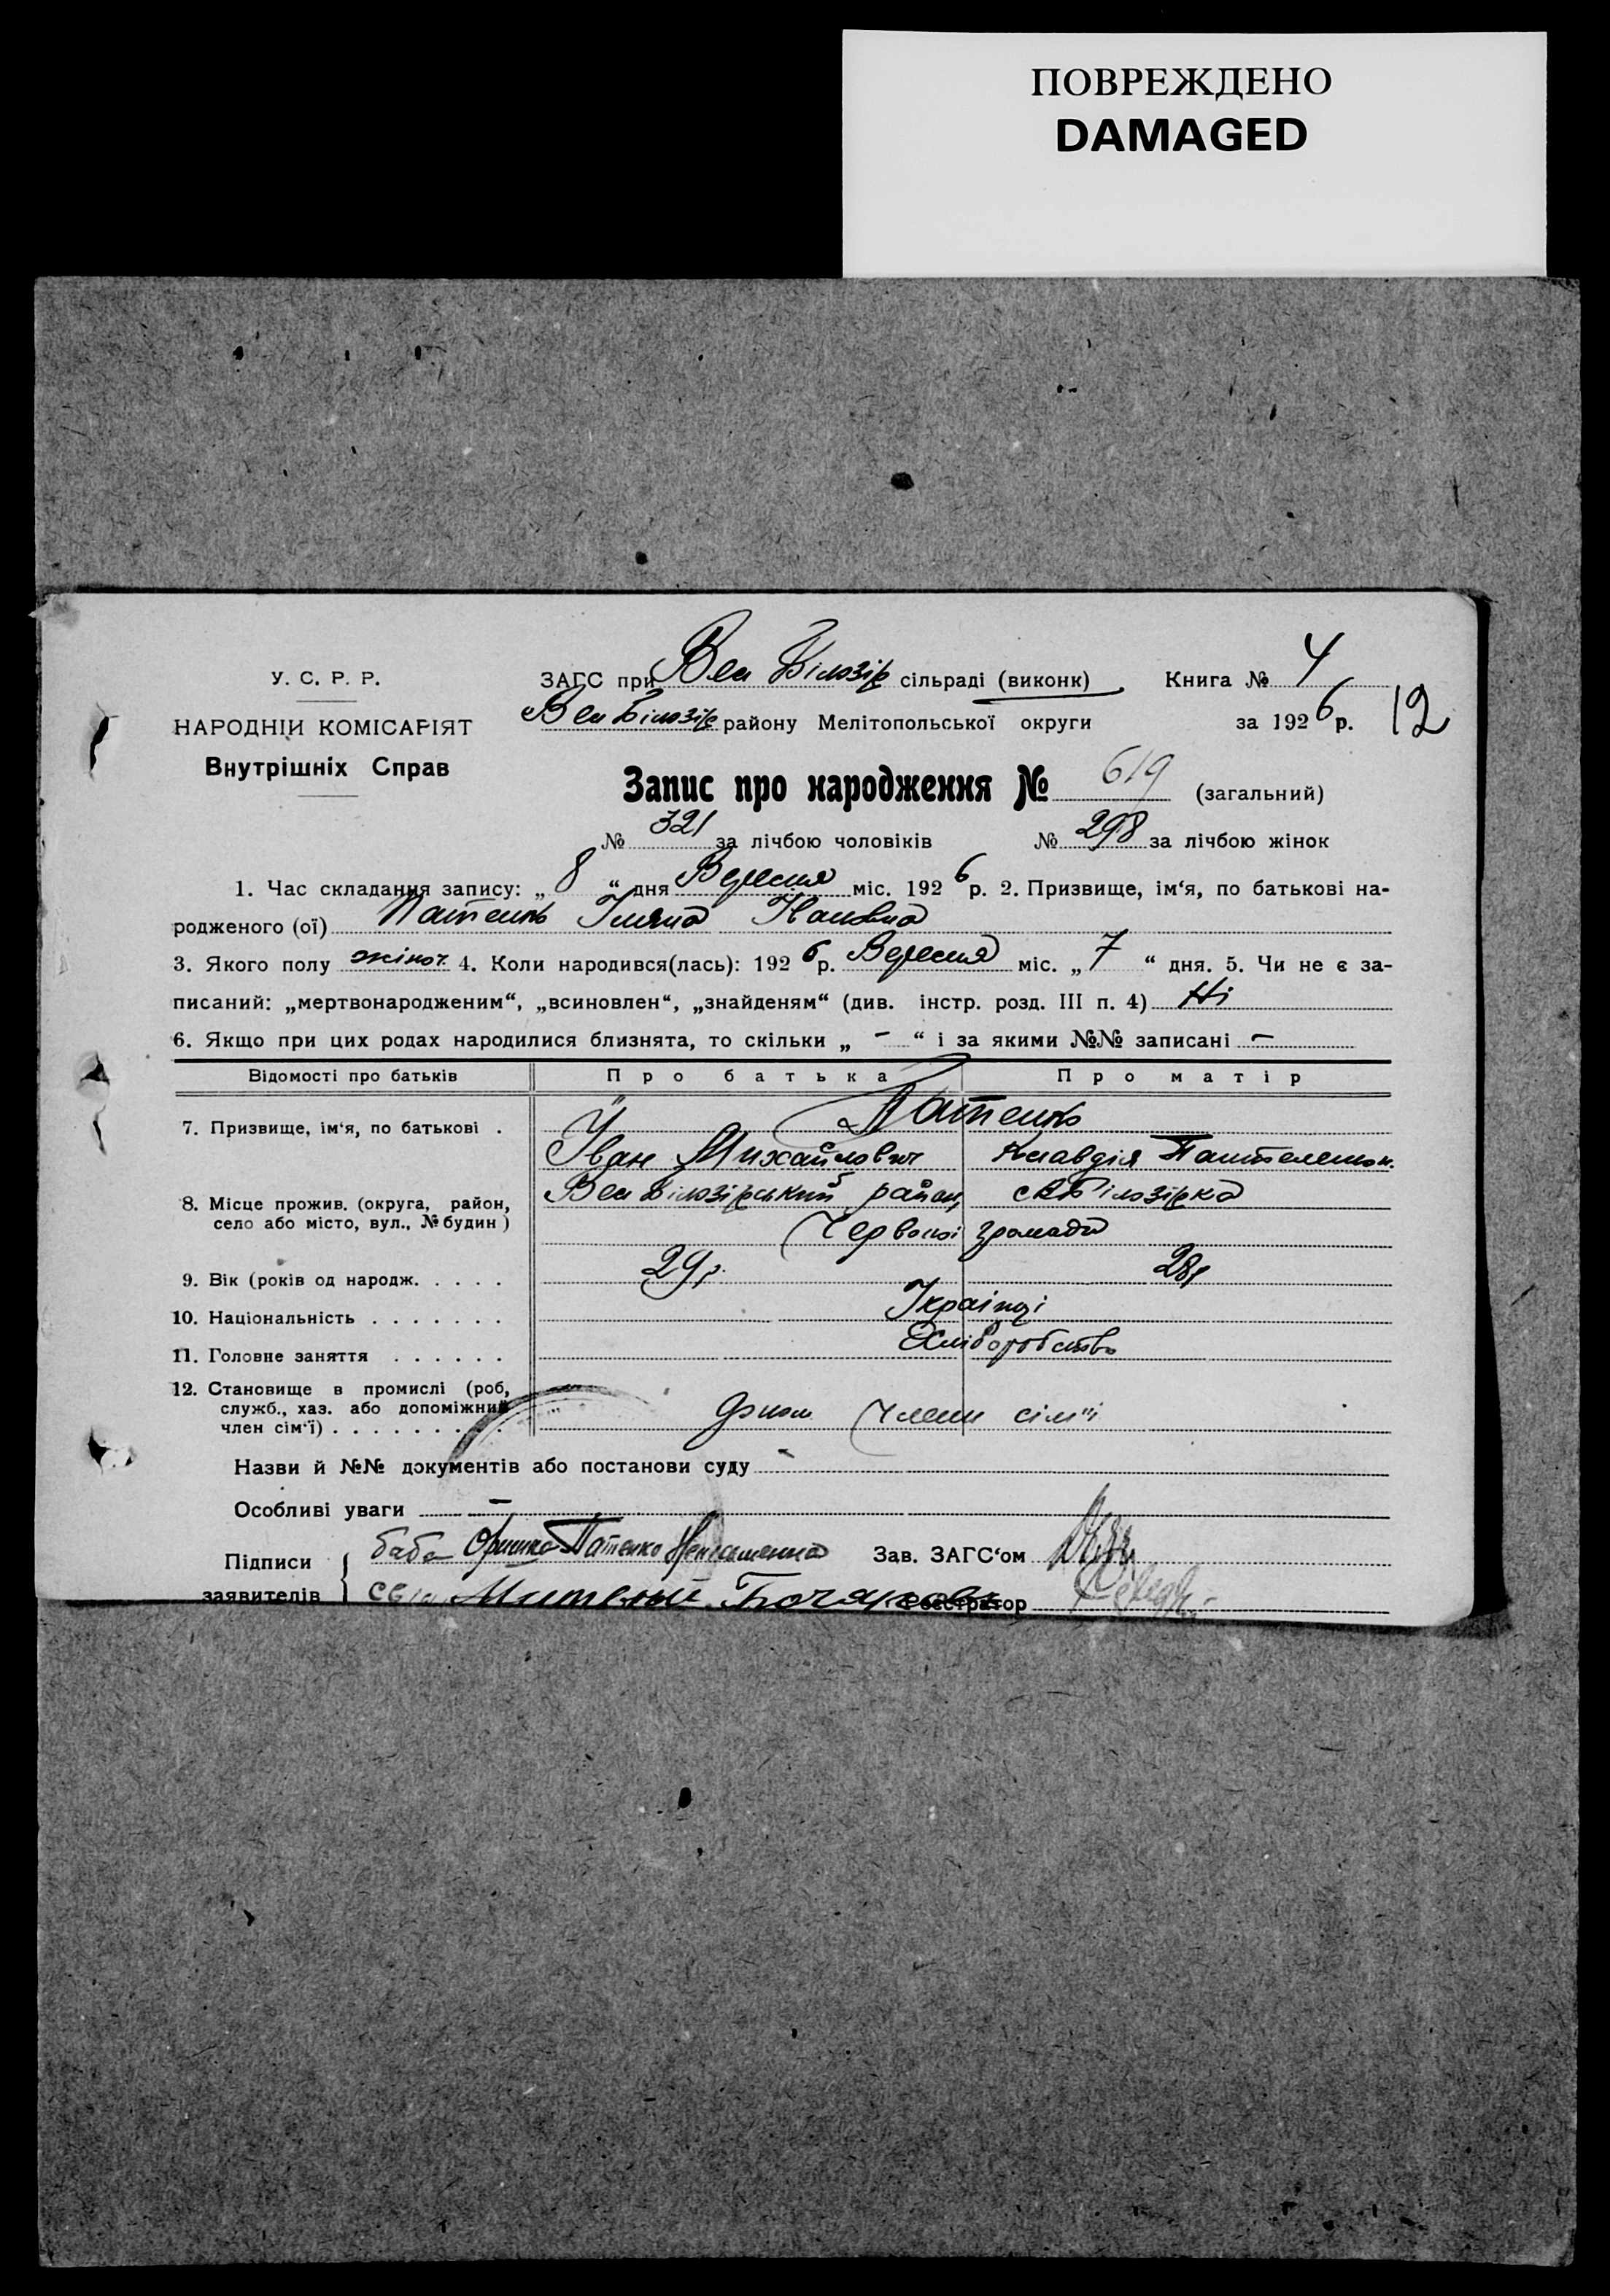 ПОВРЕЖДЕНО
DAMAGED
У. С. Р. Р.
НАРОДНІЙ КОМІСАРІЯТ
Внутрішніх Справ
ЗАГС при Вел Білозір сільраді (виконк) Книга № 4
Вел Білозір району Мелітопольської округи за 1926 р. 12
Запис про народження № 619 (загальний)
№ 321 за лічбою чоловіків № 298 за лічбою жінок
1. Час складання запису: „ 8 “ дня Вересня міс. 1926 р. 2. Призвище, ім‘я, по батькові на-
родженого (ої) Патенко Івановна
3. Якого полу жіноч. 4. Коли народився(лась): 1926 р. Вересня міс. „ 7 “ дня. 5. Чи не є за-
писаний: „мертвонародженим“, „всиновлен“, „знайденям“ (див. інстр. розд. III п. 4) Ні
6. Якщо при цих родах народилися близнята, то скільки „ - “ і за якими №№ записані -
Відомості про батьків Про батька Про матір
7. Призвище, ім‘я, по батькові . Патенко
Іван Михайлович Клавдія Пантелемон.
8. Місце прожив. (округа, район, село або місто, вул., № будин ) Вел Білозірський район, с ВБілозірка
Червоної громади
9. Вік (років од народж. . . . . 29 р. 28 р
10. Національність . . . . . . . Українці
11. Головне заняття . . . . . . Хліборобство
12. Становище в промислі (роб,
служб., хаз. або допоміжний
член сім‘ї) . . . . . . . . . Члени сім'ї
Назви й №№ документів або постанови суду -
Особливі уваги -
Підписи баба Оришка Патенко Зав. ЗАГС‘ом
заявителів Реєстратор